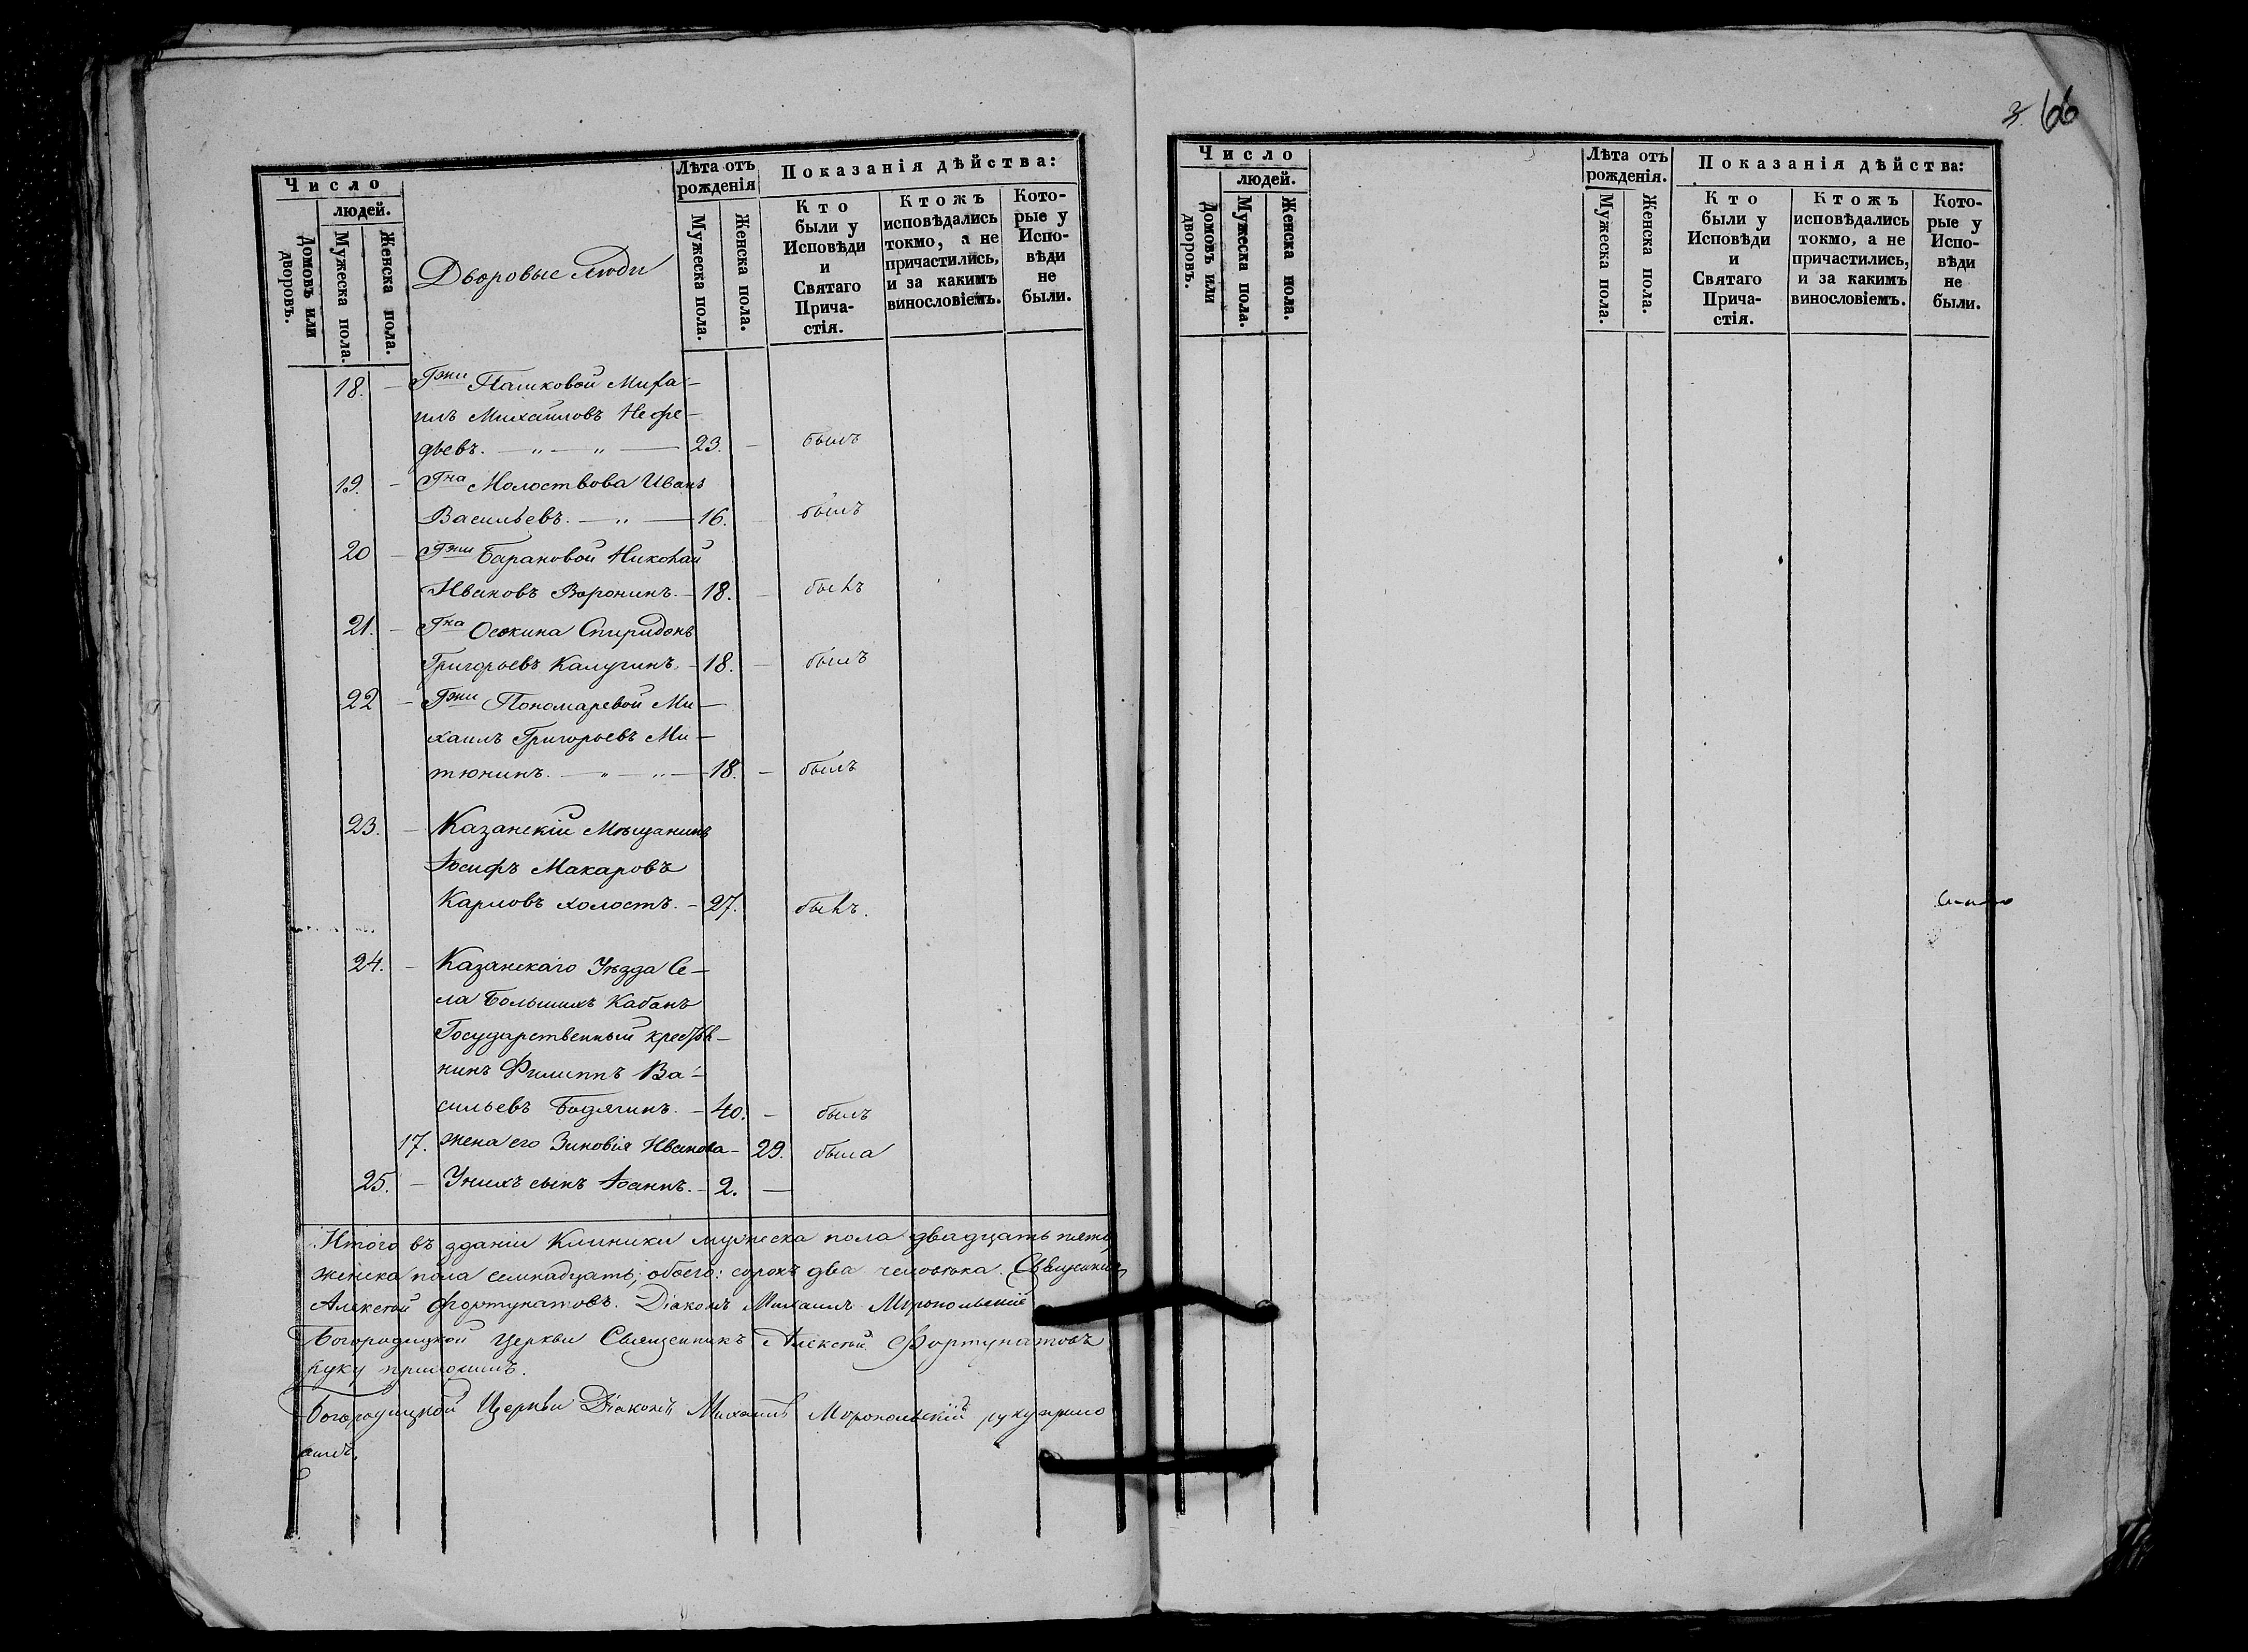 3 66
Число
людей.
Домовъ или дворовъ.
Мужеска пола.
Женска пола.
Дворовые люди
Лѣта отъ рожденія
Мужеска пола.
Женска пола.
Показанія дѣйства:
Кто были у Исповѣди и Святаго Прича-стія.
Ктожъ исповѣдались токмо, а не причастились, и за какимъ винословіемъ.
Кото-рые у Испо-вѣди не были.
18. — Гжи Пашковой Миха-
илъ Михаиловъ Нефе-
дьевъ. — „ — „ — 23. — былъ
19. — Гна Молоствова Иванъ
Васильевъ. — „ — 16. — былъ
20 — Гжи Барановой Николай
Ивановъ Воронинъ. — 18. — былъ
21. — Гна Осокина Спиридонъ
Григорьевъ Калугинъ. — 18. — былъ
22 — Гжи Пономаревой Ми-
хаилъ Григорьевъ Ми-
тюнинъ. — „ — „ — 18. — былъ
23. — Казанскій Мѣщанинъ
Іосифъ Макаровъ
Карповъ холостъ. — 27. былъ.
24. — Казанскаго Уѣзда Се-
ла Большихъ Кабанъ
Государственный крестья-
нинъ Филиппъ Ва-
сильевъ Бодягинъ. — 40. — былъ
17. жена его Зиновія Иванова — 29. была
25. — У нихъ сынъ Іоаннъ. — 2. —
Итого въ зданіи Клиники мужеска пола двадцать пять,
женска пола семнадцать; обоего: сорокъ два человѣка. Священникъ
Алексѣй Фортунатовъ. Діаконъ Михаилъ Миропольскій
Богородицкой Церкви Священникъ Алексѣй Фортунатовъ
руку приложилъ.
Богородицкой Церкви Діаконъ Михаилъ Миропольскій руку прило
жилъ.
Число
людей.
Домовъ или дворовъ.
Мужеска пола.
Женска пола.
Лѣта отъ рожденія.
Мужеска пола.
Женска пола.
Показанія дѣйства:
Кто были у Исповѣди и Святаго Прича-стія.
Ктожъ исповѣдались токмо, а не причастились, и за какимъ винословіемъ.
Кото-рые у Испо-вѣди не были.